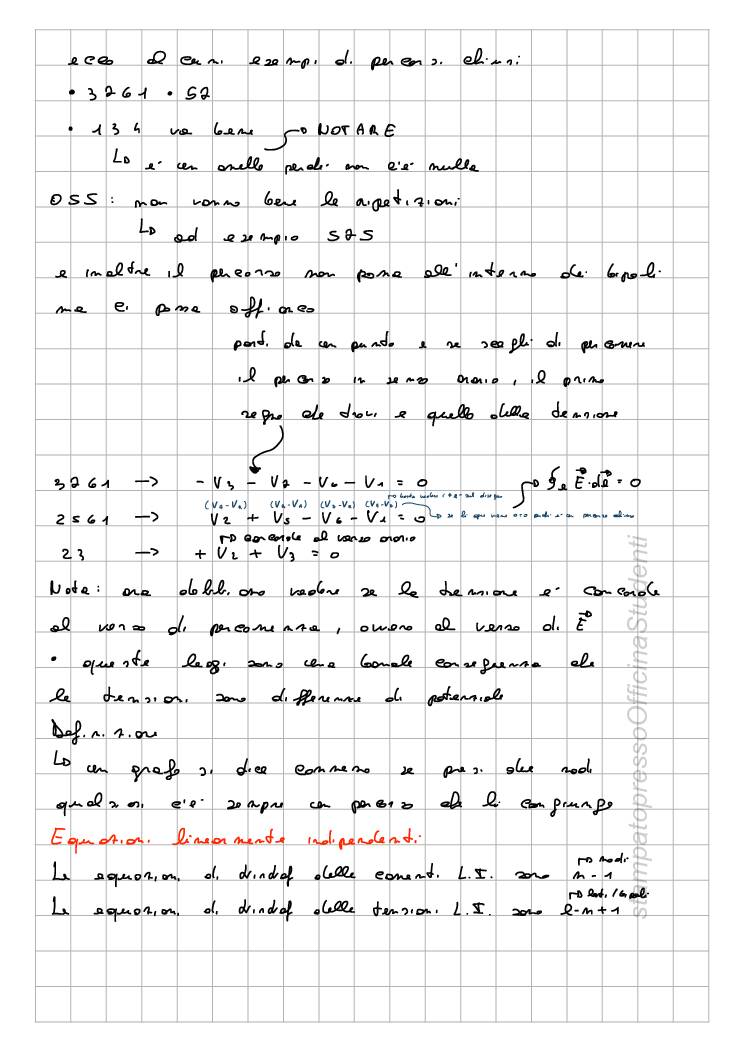 ecco alcuni esempi di percorsi chiusi
• 3261 • 52
• 134 va bene → NOTARE
↳ è un anello perché non c'è nulla
OSS: non vanno bene le ripetizioni
↳ ad esempio 525
e inoltre il percorso non passa all'interno dei bipoli
ma ci passa affianco
parti da un punto e se scegli di percorrere
il percorso in senso orario, il primo
segno che trovi è quello della tensione
3261 → -V3 - V2 - V6 - V1 = 0 → ∮e E·dl = 0
2561 → V2 + V5 - V6 - V1 = 0
→ concorde al verso orario
23 → + V2 + V3 = 0
Nota: ora dobbiamo vedere se la tensione è concorde
al verso di percorrenza, ovvero al verso di E
• queste leggi sono una banale conseguenza che
le tensioni sono differenze di potenziale
Definizione
↳ un grafo si dice connesso se presi due nodi
qualsiasi c'è sempre un percorso che li congiunge
Equazioni linearmente indipendenti
→ nodi
Le equazioni di Kirchhof delle correnti L.I. sono n-1
→ lati/
Le equazioni di Kirchhof delle tensioni L.I. sono l-n+1
stampatopressoOfficinaStudenti